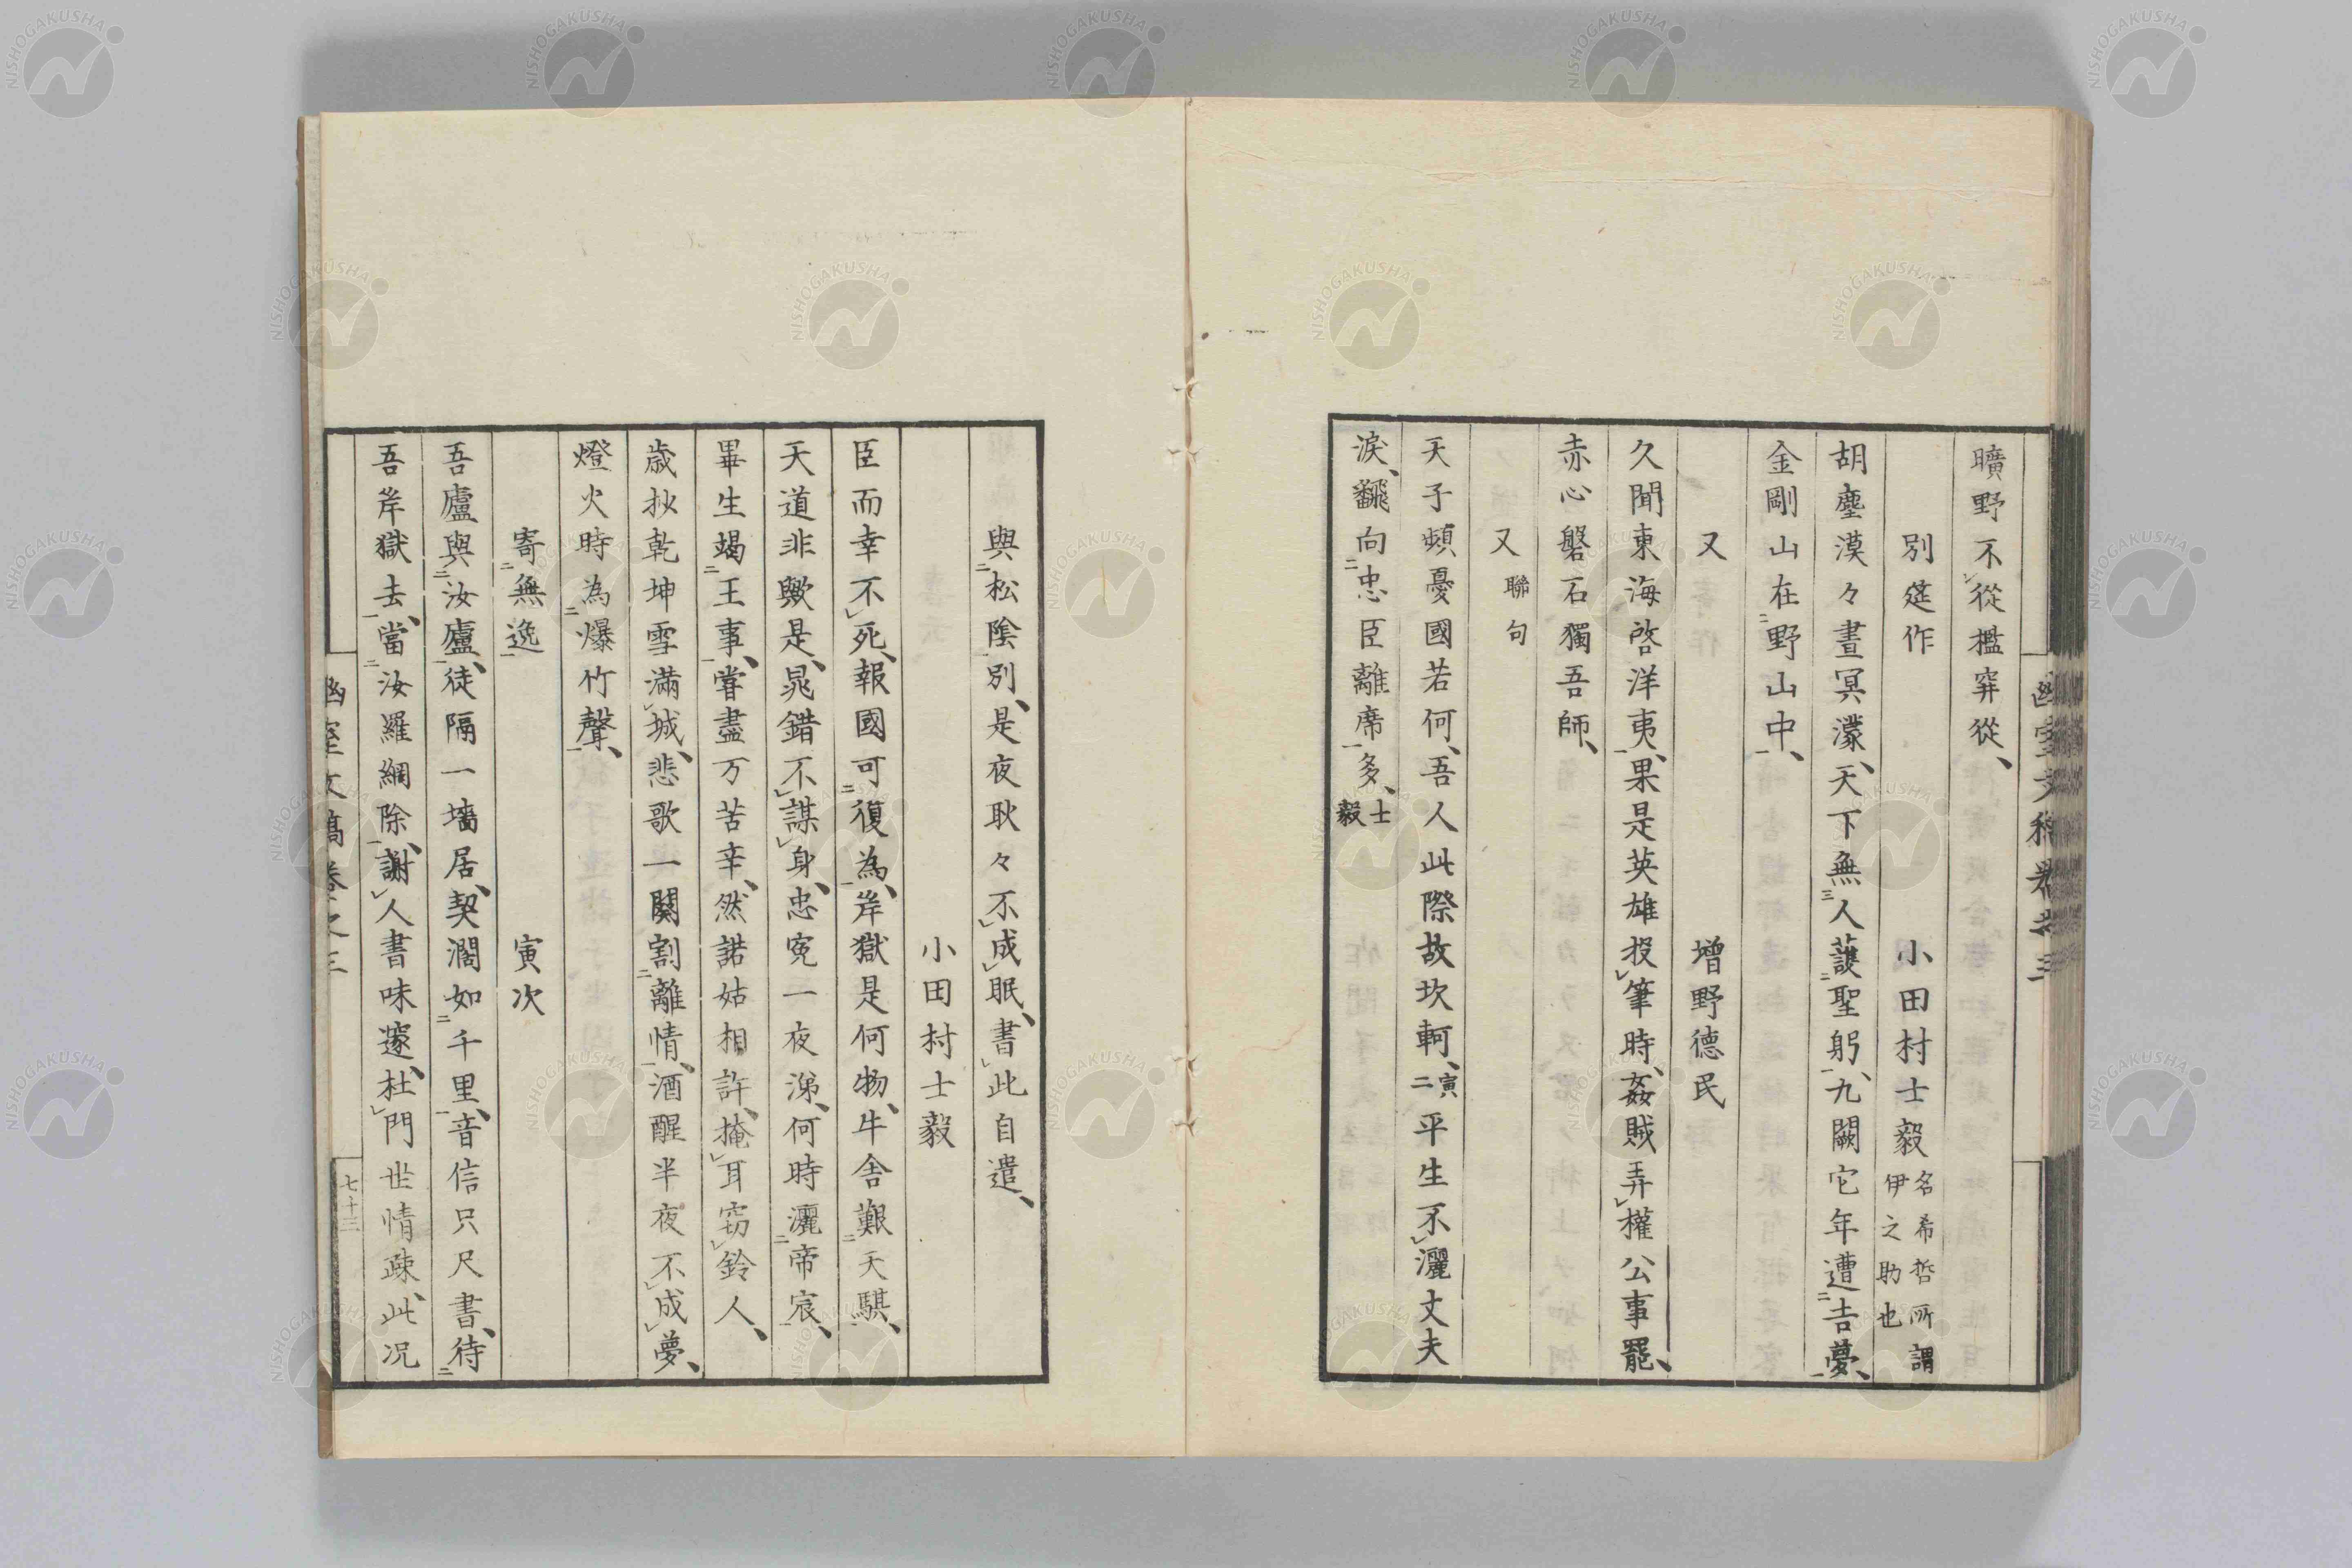 幽室文稿卷之三
曠野不從檻穽從、
別筵作　小田村士毅　名希哲所謂伊之助也
胡塵漠々晝冥濛、天下無三人護二聖躬一、九闕它年遭二吉夢一、
金剛山在二野山中一、
又　增野德民
久聞東海啓洋夷、果是英雄投レ筆時、姦賊弄レ權公事罷、
赤心磐石獨吾師、
又　聯句
天子頻憂國若何、吾人此際故坎軻、寅二　平生不レ灑丈夫
淚、飜向二忠臣離席一多、士毅
與二松陰一別、是夜耿々不レ成レ眠、書レ此自遣、
小田村士毅
臣而幸不レ死、報國可二復為一、岸獄是何物、牛舍艱二天騏一、
天道非歟是、晁錯不レ謀レ身、忠寃一夜涕、何時灑二帝宸一、
畢生竭二王事一、嘗盡万苦辛、然諾姑相許、掩レ耳窃レ鈴人、
歲抄乾坤雪滿レ城、悲歌一闋割二離情一、酒醒半夜不レ成レ夢、
燈火時為二爆竹聲一、
寄二無逸一　寅次
吾廬與二汝廬一、徒隔一墻居、契濶如二千里一、音信只尺書、待二
吾岸獄去一、當二汝羅網除一、謝レ人書味邃、杜レ門世情疎、此况
幽室文稿卷之三
七十三
NISHOGAKUSHA